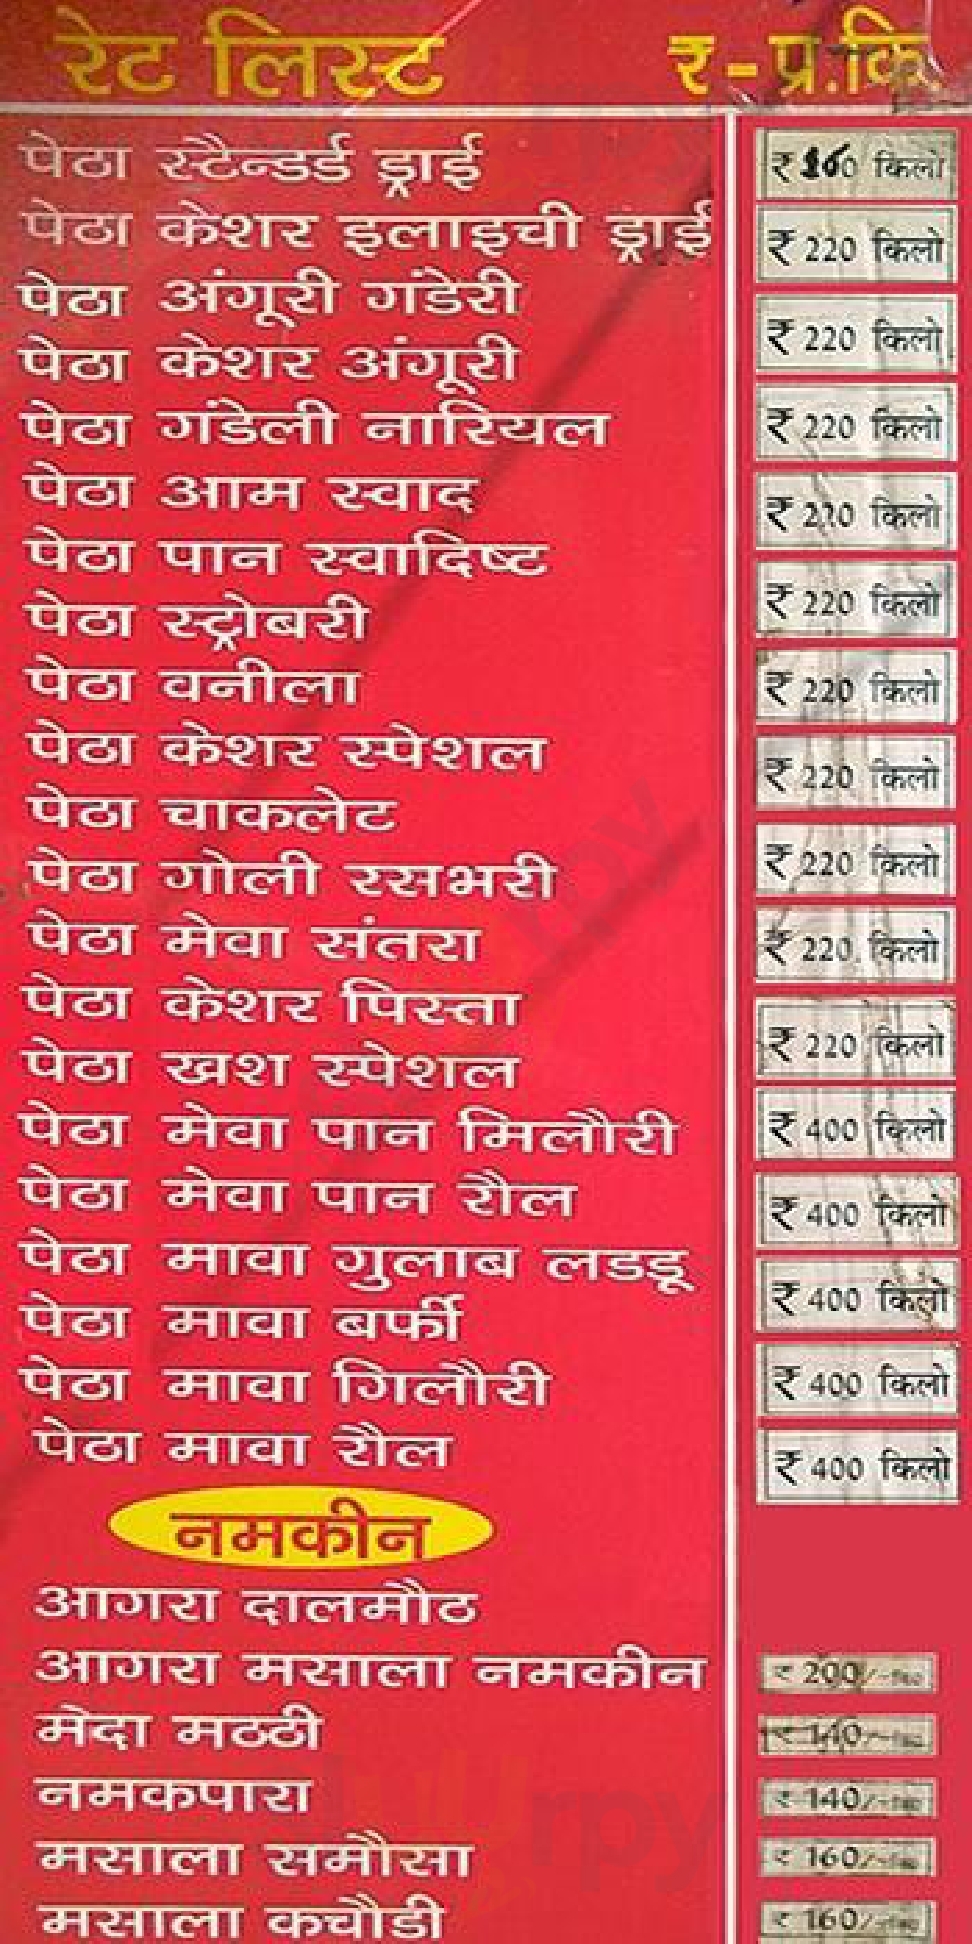 रेट लिस्ट ₹-प्र.कि.
पेठा स्टैन्डर्ड ड्राई
₹ 160 किलो
पेठा केशर इलाइची ड्राई
₹ 220 किलो
पेठा अंगूरी गंडेरी
पेठा केशर अंगूरी
₹ 220 किलो
पेठा गंडेली नारियल
₹ 220 किलो
पेठा आम स्वाद
₹ 220 किलो
पेठा पान स्वादिष्ट
पेठा स्ट्रोबरी
₹ 220 किलो
पेठा वनीला
₹ 220 किलो
पेठा केशर स्पेशल
₹ 220 किलो
पेठा चाकलेट
पेठा गोली रसभरी
₹ 220 किलो
पेठा मेवा संतरा
₹ 220 किलो
पेठा केशर पिस्ता
₹ 220 किलो
पेठा खश स्पेशल
पेठा मेवा पान मिलौरी
₹ 400 किलो
पेठा मेवा पान रौल
₹ 400 किलो
पेठा मावा गुलाब लडडू
₹ 400 किलो
पेठा मावा बर्फी
पेठा मावा गिलौरी
₹ 400 किलो
पेठा मावा रौल
₹ 400 किलो
नमकीन
आगरा दालमौठ
आगरा मसाला नमकीन
₹ 200/-
मेदा मठठी
₹ 140/-
नमकपारा
₹ 140/-
मसाला समौसा
₹ 160/-
मसाला कचौडी
₹ 160/-